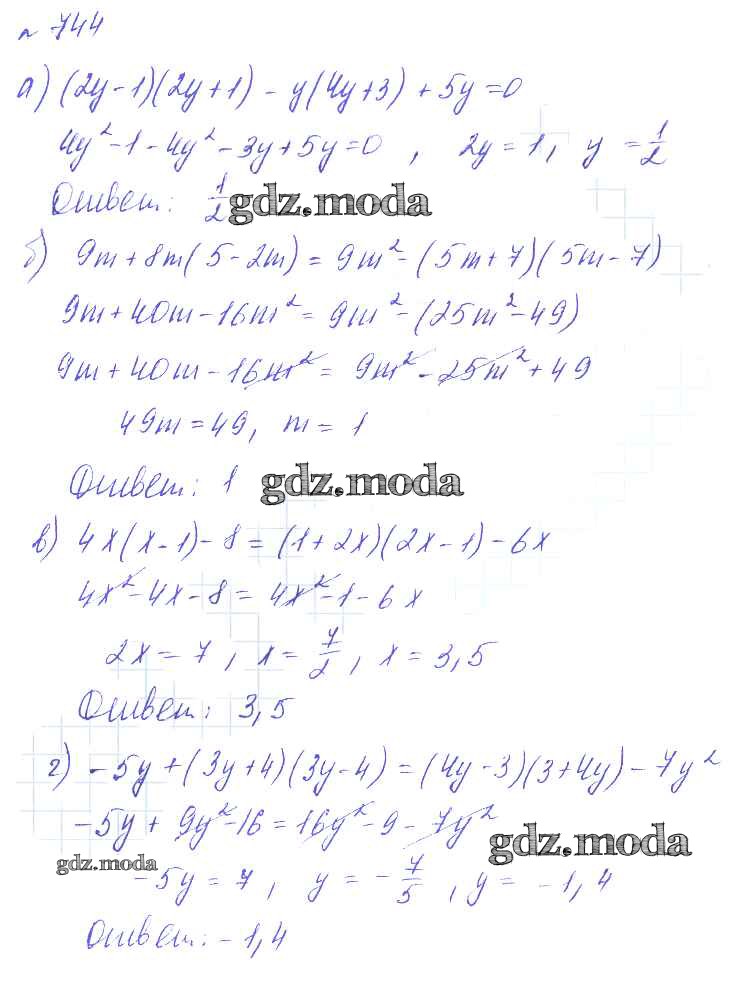 № 744
а) (2y-1)(2y+1) - y(4y+3) + 5y = 0
4y² - 1 - 4y² - 3y + 5y = 0 , 2y = 1, y = 1/2
Ответ: 1/2 gdz.moda
б) 9m + 8m(5-2m) = 9m² - (5m+7)(5m-7)
9m + 40m - 16m² = 9m² - (25m² - 49)
9m + 40m - 16m² = 9m² - 25m² + 49
49m = 49, m = 1
Ответ: 1 gdz.moda
в) 4x(x-1) - 8 = (1+2x)(2x-1) - 6x
4x² - 4x - 8 = 4x² - 1 - 6x
2x = 7 , x = 7/2 , x = 3,5
Ответ: 3,5
г) -5y + (3y+4)(3y-4) = (4y-3)(3+4y) - 7y²
-5y + 9y² - 16 = 16y² - 9 - 7y²
gdz.moda
gdz.moda
-5y = 7 , y = -7/5 , y = -1,4
Ответ: -1,4